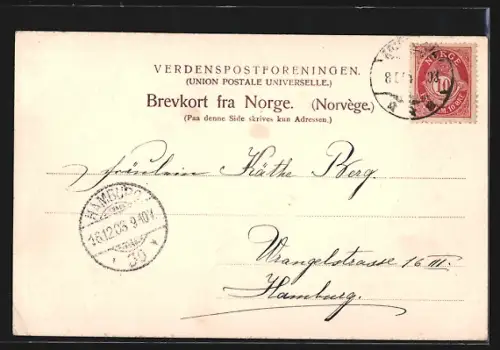 VERDENSPOSTFORENINGEN.
(UNION POSTALE UNIVERSELLE.)
Brevkort fra Norge. (Norvège.)
(Paa denne Side skrives kun Adressen.)
NORGE
10
Fräulein Käthe Berg.
HAMBURG
16.12.03. 9-10V.
* 39 *
Wrangelstrasse 16 III.
Hamburg.